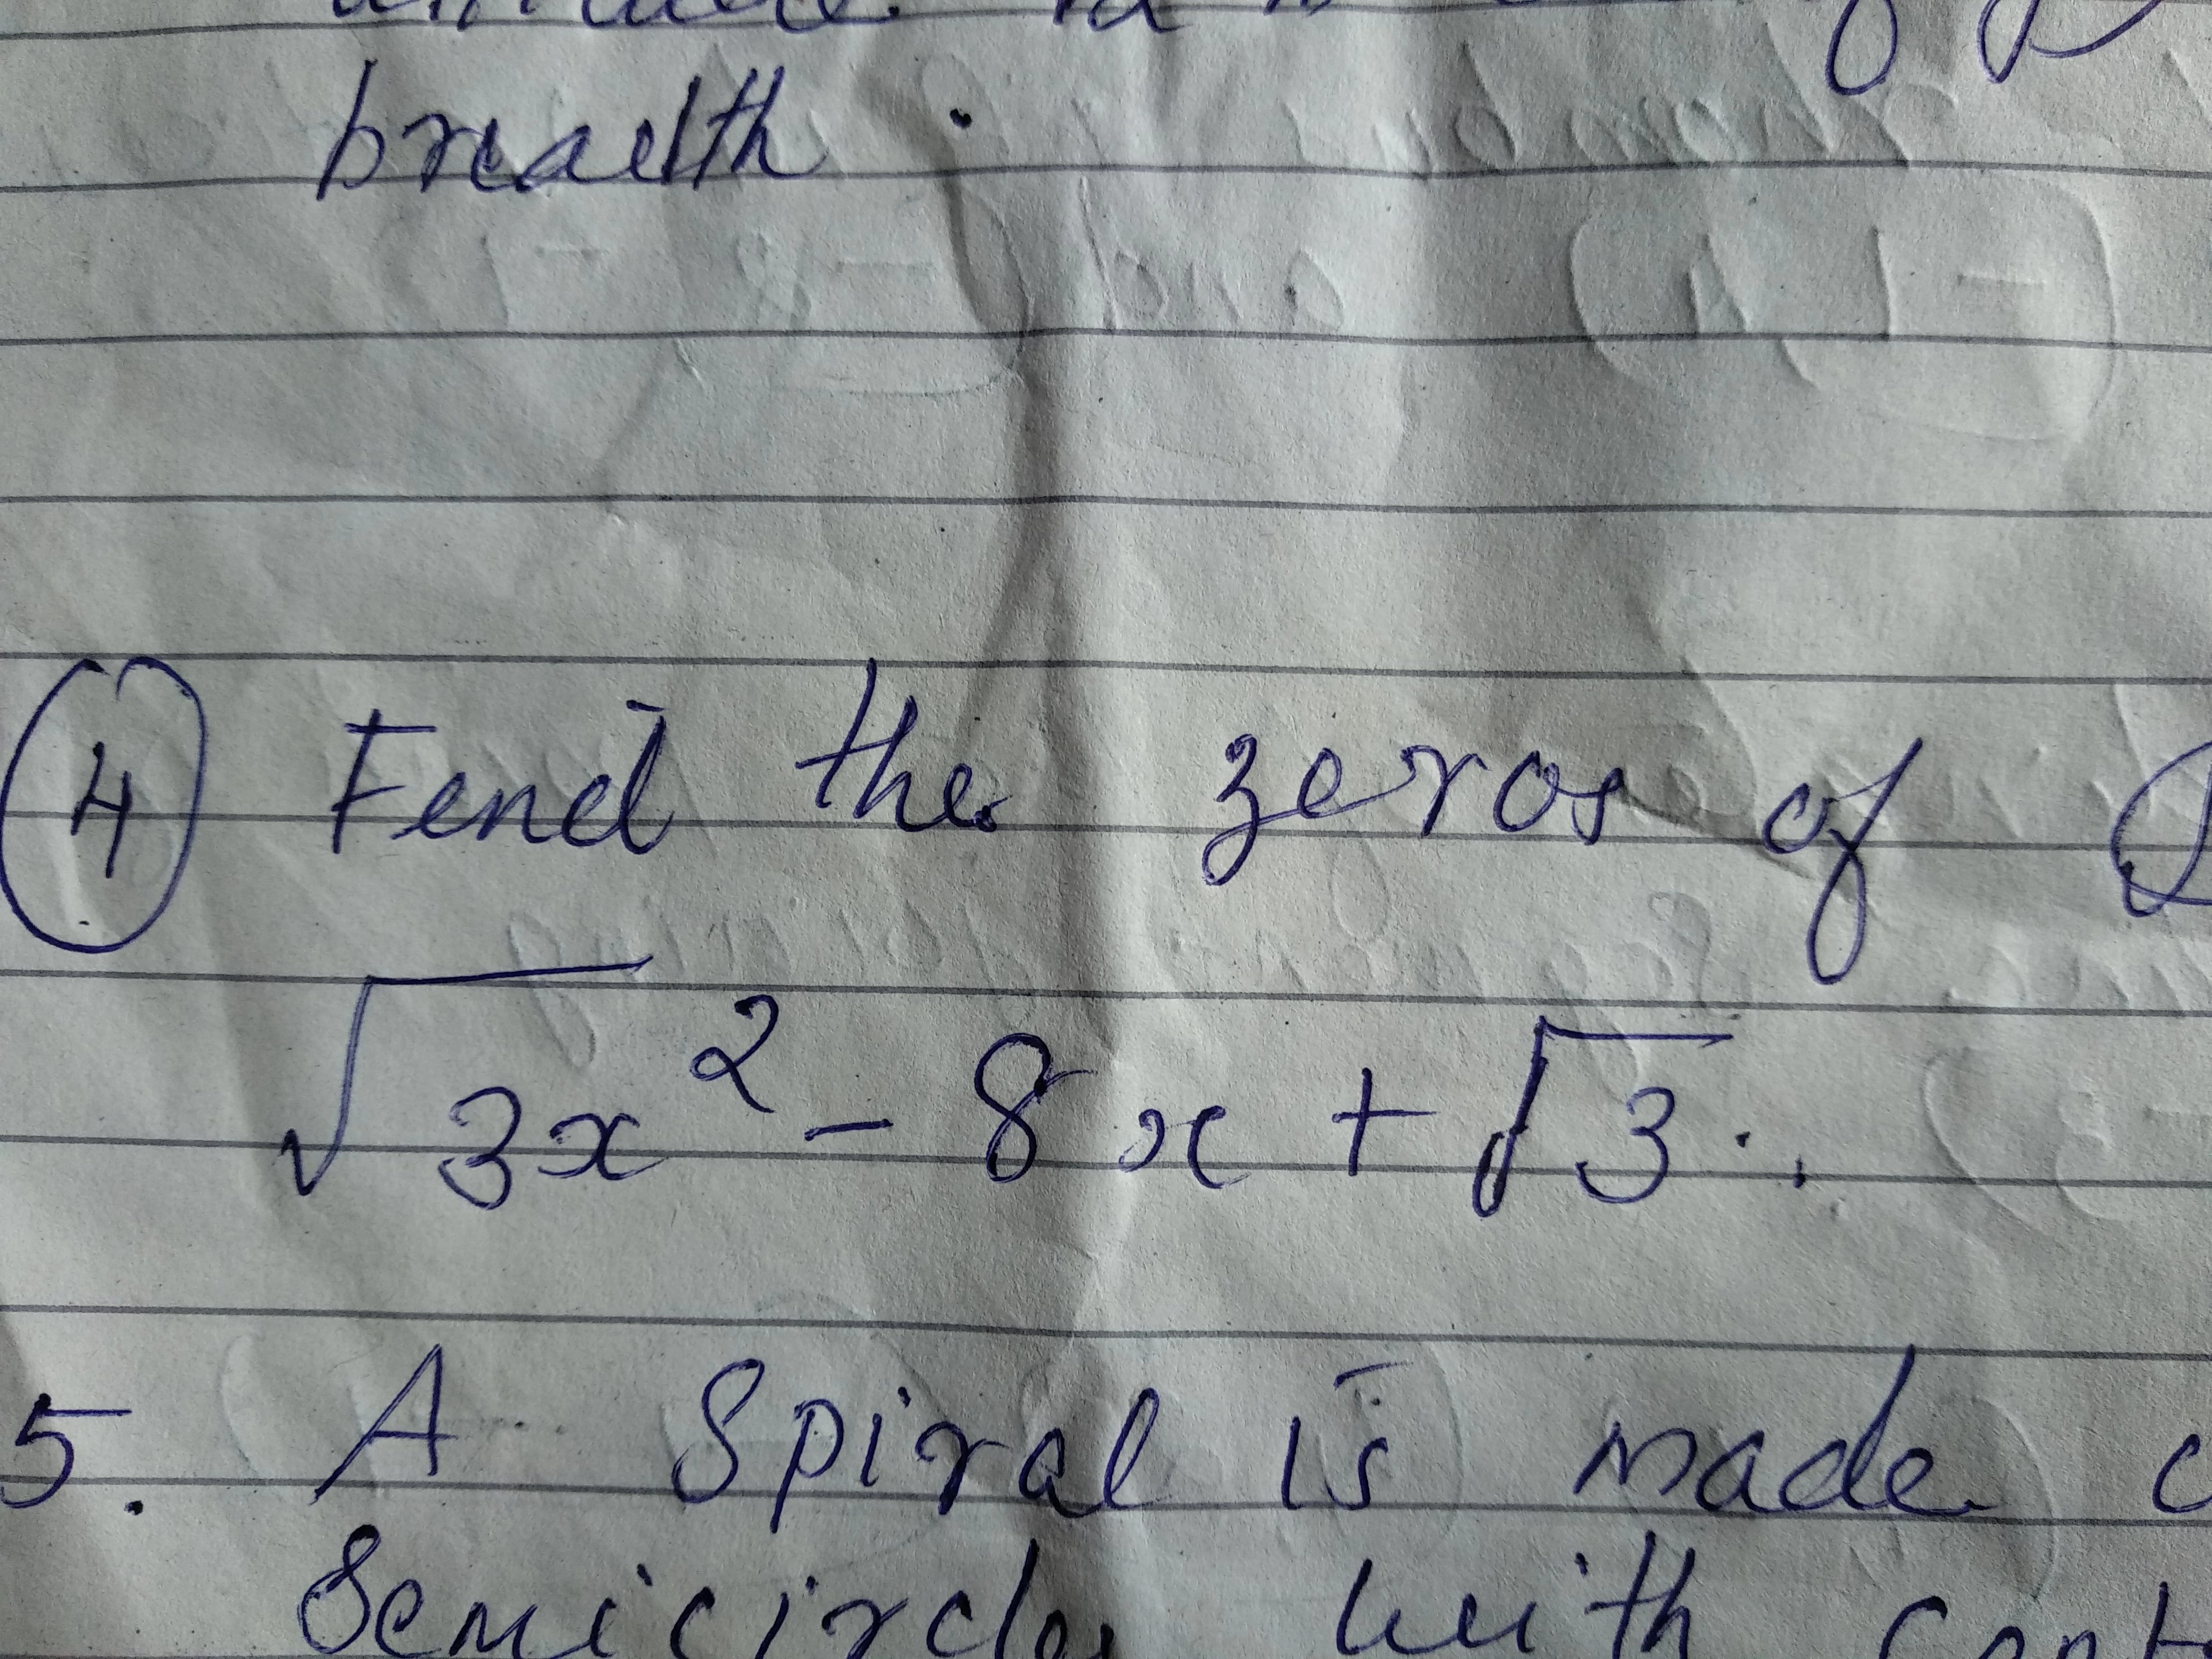 breadth.
④ Fend the zeros of
√3x² - 8x + √3.
5. A Spiral is made
Semicircles with